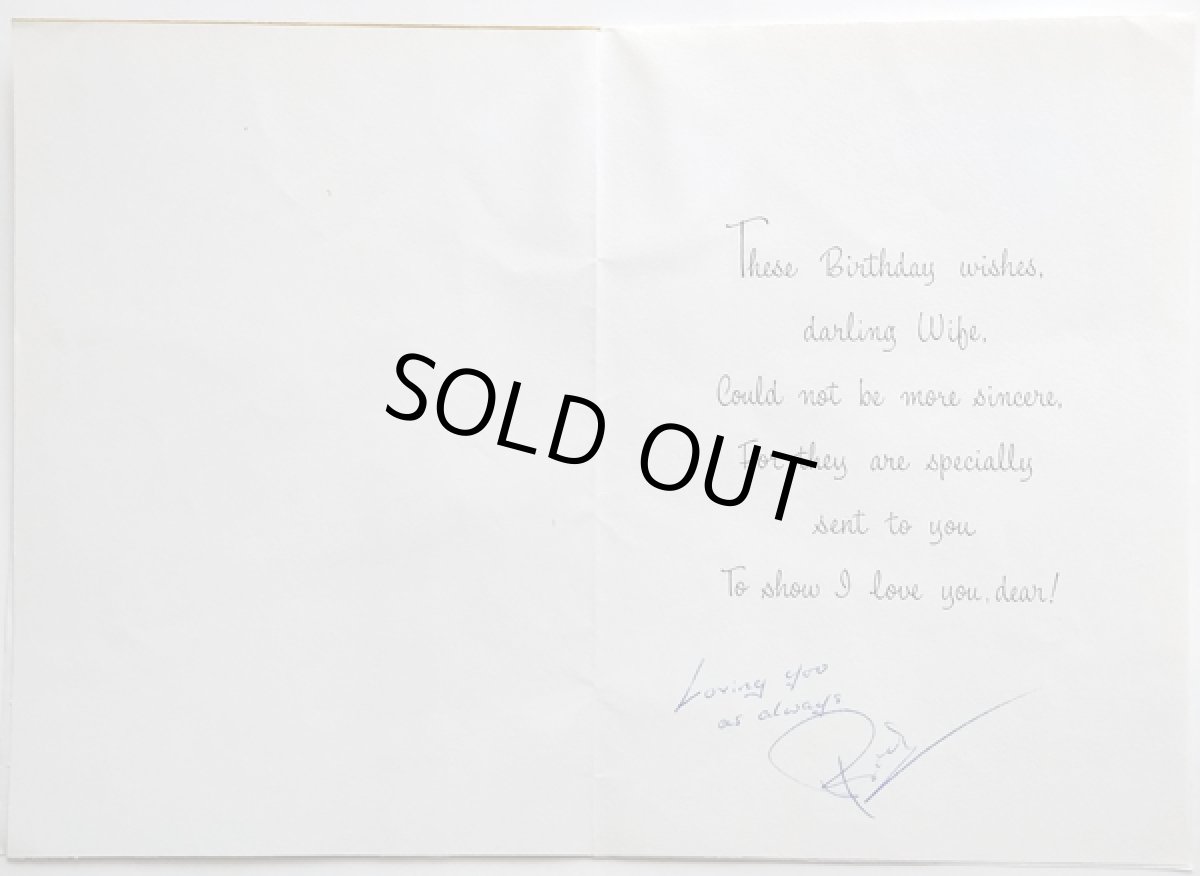 These Birthday wishes,
darling Wife,
Could not be more sincere,
For they are specially
sent to you
To show I love you, dear!
SOLD OUT
Loving you
as always